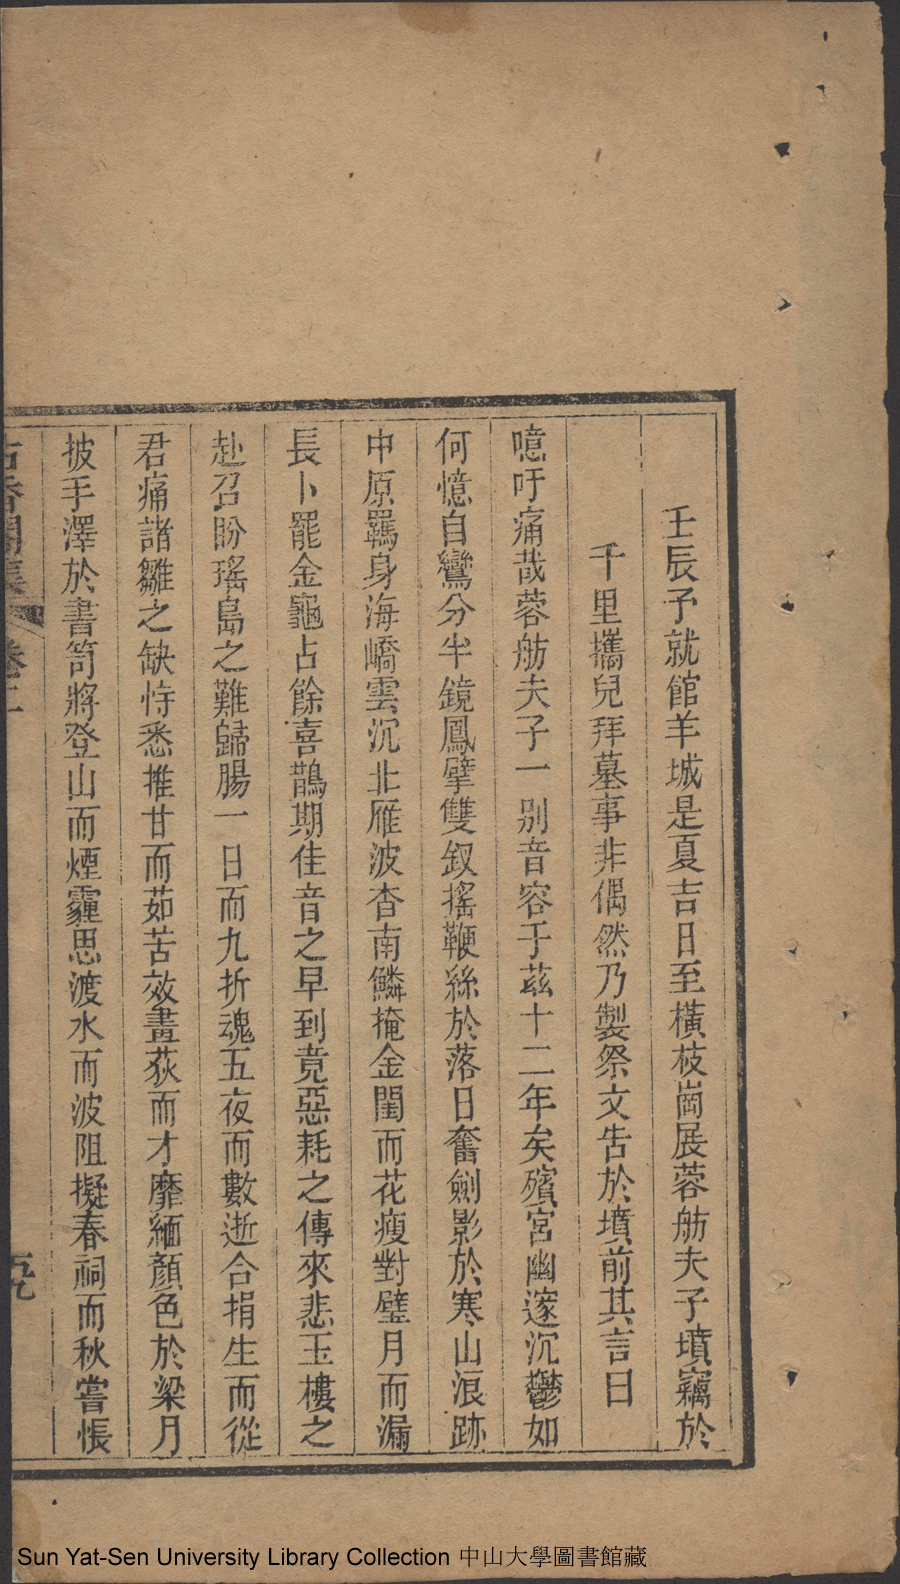 壬辰予就館羊城是夏吉日至橫枝崗展蓉舫夫子墳竊於
千里攜兒拜墓事非偶然乃製祭文告於墳前其言曰
噫吁痛哉蓉舫夫子一别音容于茲十二年矣殯宮幽邃沉鬱如
何憶自鸞分半鏡鳳擘雙釵搖鞭絲於落日奮劍影於寒山浪跡
中原羈身海嶠雲沉北雁波杳南鱗掩金閨而花瘦對璧月而漏
長卜罷金龜占餘喜鵲期佳音之早到竟惡耗之傳來悲玉樓之
赴召盼瑤島之難歸腸一日而九折魂五夜而數逝合捐生而從
君痛諸雛之缺恃悉推甘而茹苦效畫荻而才靡緬顏色於梁月
披手澤於書笥將登山而煙霾思渡水而波阻擬春祠而秋嘗悵
古香閣集 卷二
五九
Sun Yat-Sen University Library Collection 中山大學圖書館藏